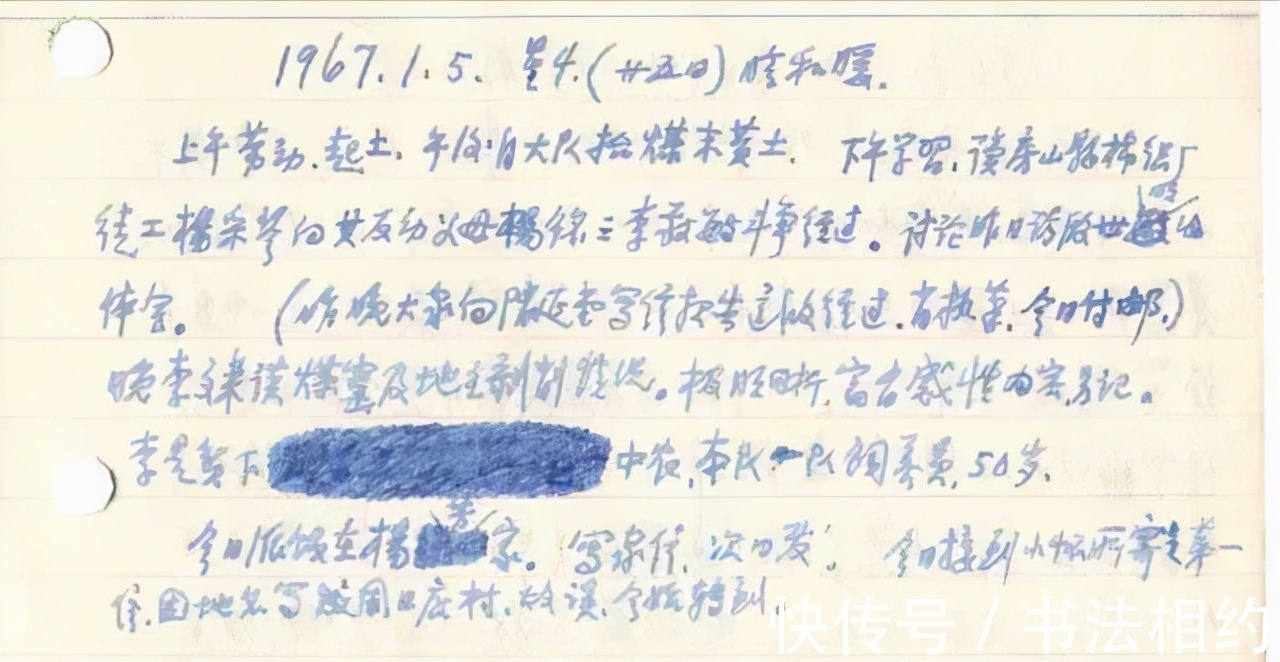 1967.1.5. 星4.(廿五日)晴和暖.
上午劳动.起土.午后自大队抬煤末黄土. 下午学习,读房山县棉织厂
徒工杨采琴向其反动父母杨锦三李敬敏斗争经过。讨论昨日访
体会。(昨晚大家向陈延奎写信报告过经过.有抄集.今日付邮.)
晚李来谈煤窑及地主剥削状况。极明晰,富有感性内容,另记。
李是贺下 中农,本队一队饲养员,50岁.
今日派饭在杨 家。写家信,次日发. 今日接到小 所寄之第一
信,因地名写成周口店村,故误,今始转到.
快传号 / 书法相约